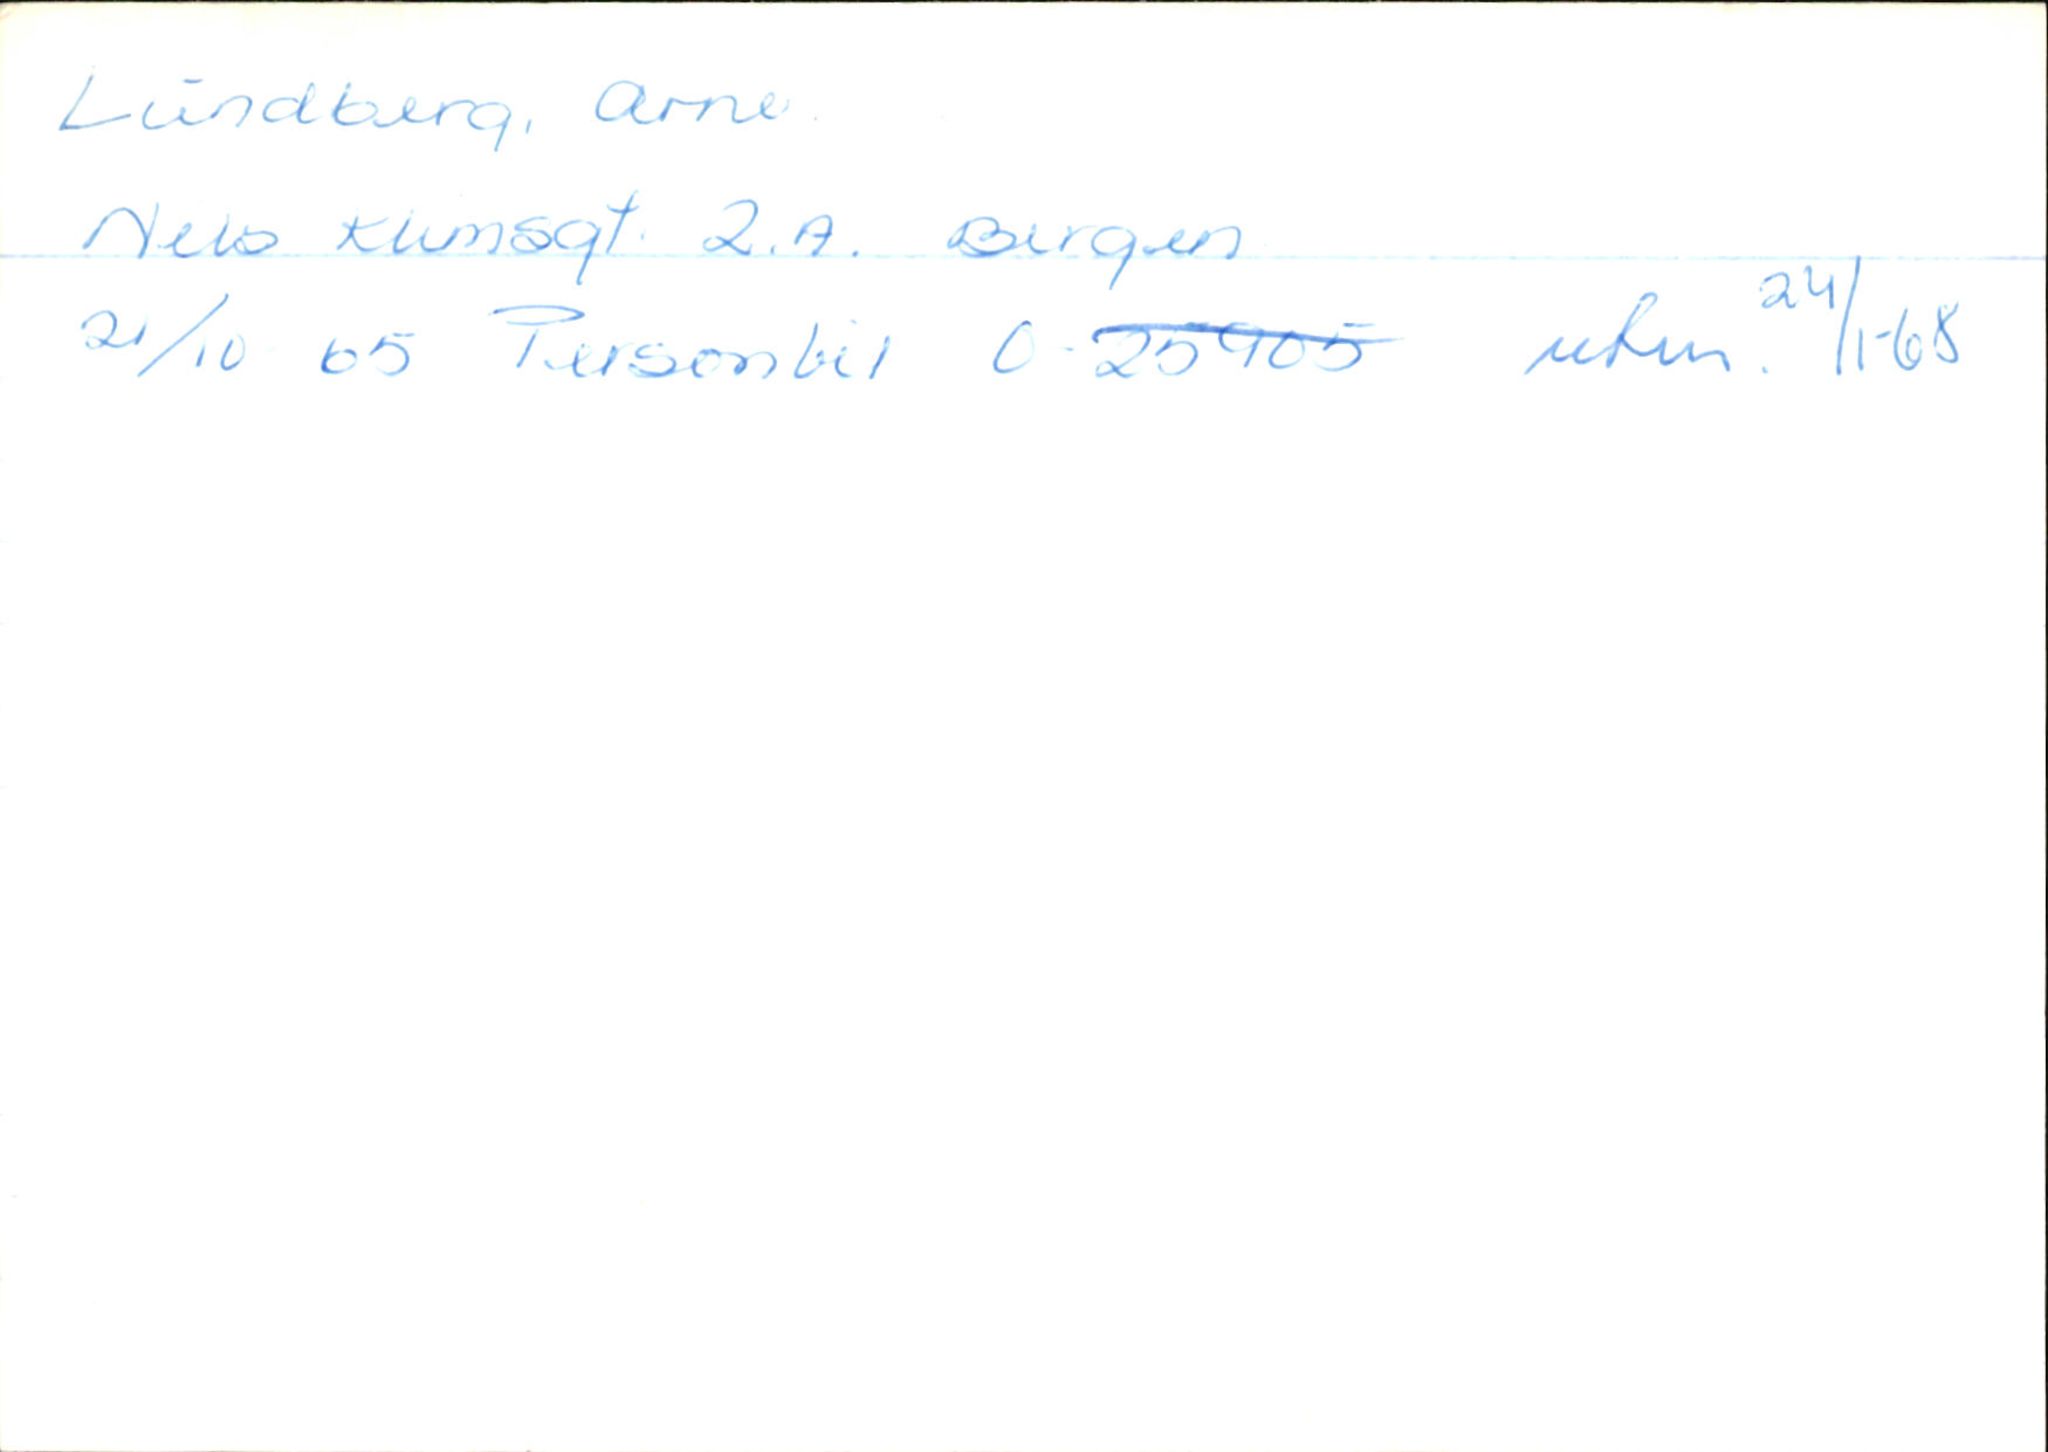 Lundberg, Arne.
Nels Klimsgt. 2.A. Bergen
21/10-65 Personbil O-25905 utlm. 24/1-68